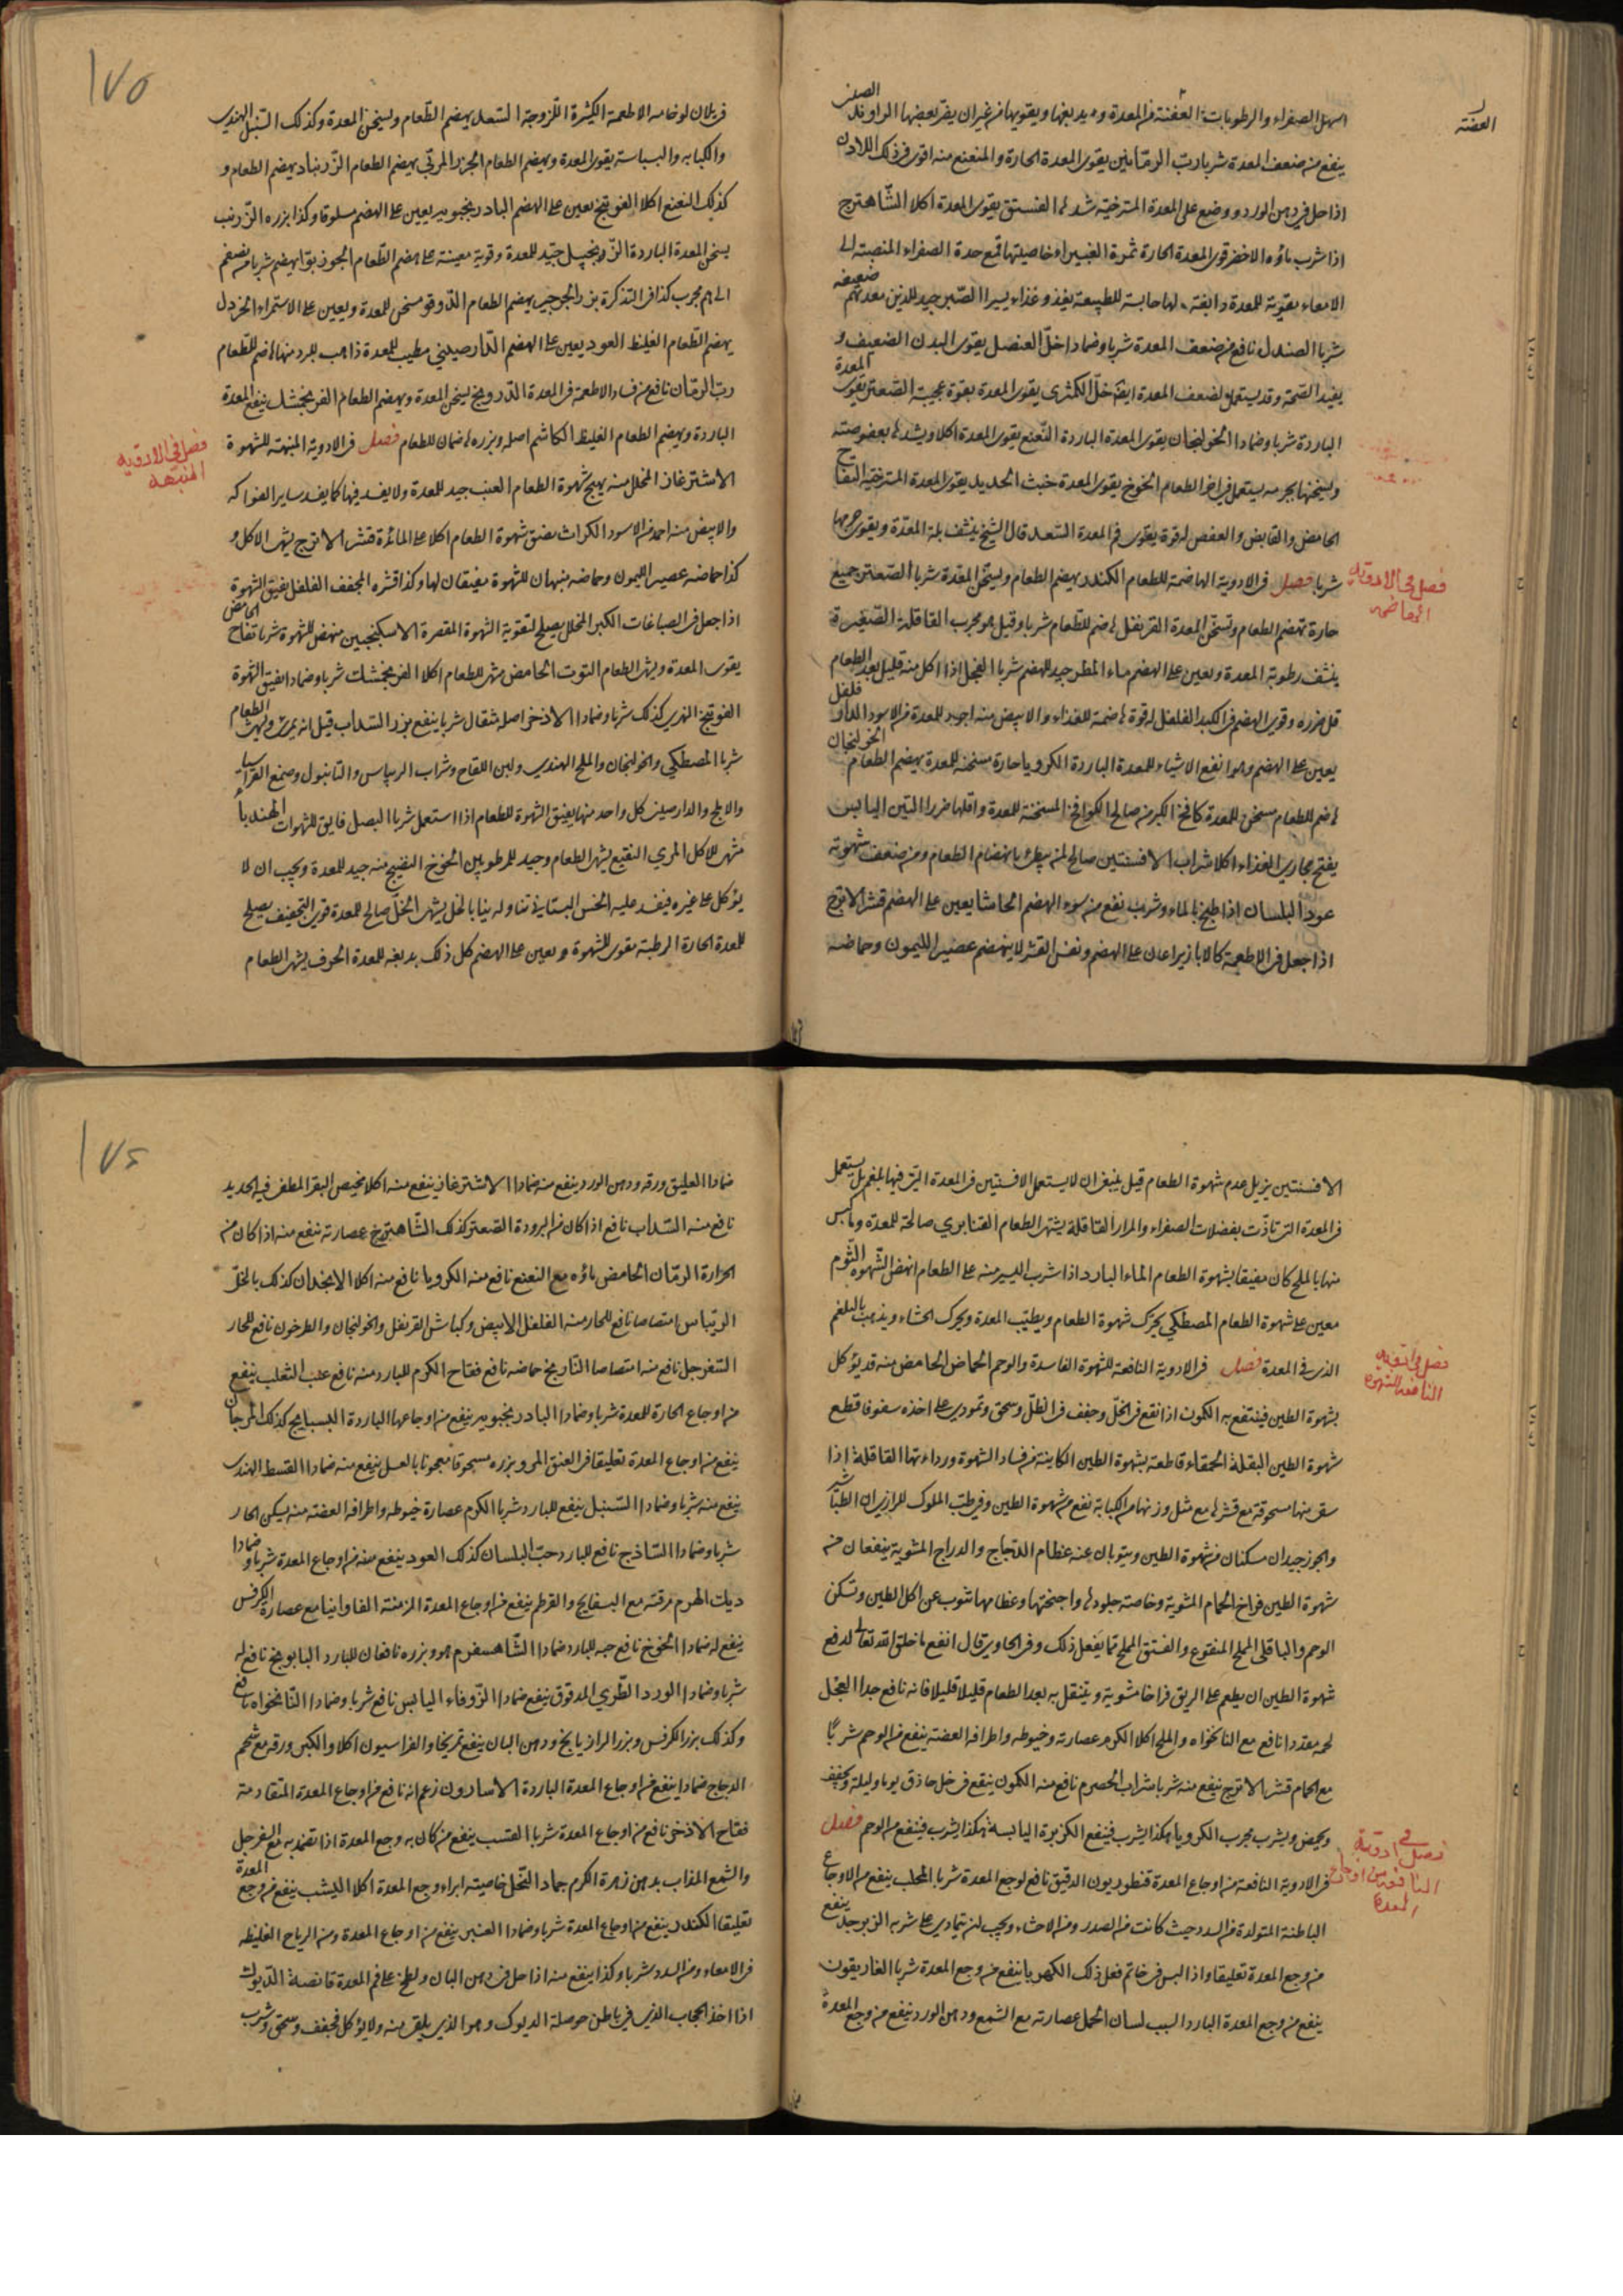 العفنة
اسهل الصفراء والرطوبات العفنة من المعدة ويدبغها ويقويها من غير ان يضر بعضها الراوند الصينى
ينفع من ضعف المعدة شربا رب الرمانين يقوى المعدة الحارة والمنعنع منه اقوى فى ذلك اللادن
اذا حل فى دهن الورد ووضع على المعدة المسترخية شدها الفستق يقوى المعدة اكلا الشاهترج
اذا شرب ماؤه الاخضر قوى المعدة الحارة ثمرة الغبيرا خاصيتها قمع حدة الصفراء المنصبة الى
الامعاء مقوية للمعدة دابغة لها حابسة للطبيعة يغذو غذاء يسيرا الصبر جيد للذين معدتهم ضعيفة
شربا الصندل نافع من ضعف المعدة شربا وضمادا خل العنصل يقوى البدن الضعيف و
يفيد الصحة وقد يستعمل لضعف المعدة ايضا خل الكمثرى يقوى المعدة بقوة عجيبة الصعتر يقوى المعدة
الباردة شربا وضمادا الخولنجان يقوى المعدة الباردة النعنع يقوى المعدة اكلا ويشدها بعفوصته
ويسخنها بحر يستعمل الطعام الخوخ يقوى المعدة خبث الحديد يقوى المعدة المسترخية التفاح
الحامض والقابض والعفص له قوة يقوى فم المعدة السعد قال الشيخ ينشف بلة المعدة ويقوى جرمها
شربا فصل فى الادوية الهاضمة للطعام الكندر يهضم الطعام ويسخن المعدة شربا الصعتر جميع
فصل فى الادوية
الهاضمة
حارة تهضم الطعام وتسخن المعدة القرنفل هاضم للطعام شربا وقيل هو مجرب القاقلة الصغيرة
ينشف رطوبة المعدة ويعين على الهضم ماء المطر جيد للهضم شربا الفجل اذا اكل منه قليل بعد الطعام
قل ضرره وقوى الهضم فى الكبد الفلفل له قوة هاضمة للغذاء والابيض منه اجود للمعدة من الاسود الدار فلفل
يعين على الهضم وهو انفع الاشياء للمعدة الباردة الكرويا حارة مسخنة للمعدة يهضم الطعام الخولنجان
هاضم للطعام مسخن للمعدة كامخ الكبر منه صالح الكوامخ المسخنة للمعدة واقلها ضررا التين اليابس
يفتح مجارى الغذاء اكلا شراب الافسنتين صالح لمن يبطئ بانهضام الطعام ومن ضعف شهوته
عود البلسان اذا طبخ بالماء وشرب نفع من سوء الهضم الحاشا يعين على الهضم قشر الاترج
اذا جعل فى الاطعمة كالابازير اعان على الهضم ونفس القشر لا ينهضم عصير الليمون وحماضه
١٧٥
الاطعمة الكثيرة اللزوجة السعد يهضم الطعام ويسخن المعدة وكذلك السنبل الهندى
والكبابه والبسباسة يقوى المعدة ويهضم الطعام الجزر المربى يهضم الطعام الزرنباد يهضم الطعام و
كذلك النعنع اكلا الفوتنج يعين على الهضم البادرنجبويه يعين على الهضم مسلوقا وكذا بزره الزرنب
يسخن المعدة الباردة الزنجبيل جيد للمعدة وقوية معينة على هضم الطعام الجوزبوا يهضم شربا
مجرب كذا فى التذكرة بزر الجرجير يهضم الطعام الدوقو مسخن للمعدة ويعين على الاستمراء الخردل
يهضم الطعام الغليظ العود يعين على الهضم الدارصينى مطيب للمعدة ذاهب للبرد منها هاضم للطعام
رب الرمان نافع من فساد الاطعمة فى المعدة الدرونج يسخن المعدة ويهضم الطعام الفرنجمشك ينفع المعدة
الباردة ويهضم الطعام الغليظ الكاشم اصله وبزره هاضمان للطعام فصل فى الادوية المنبهة للشهوة
فصل فى الادوية
المنبهة
الاشترغاز المخلل منه يهيج شهوة الطعام العنب جيد للمعدة ولا يفسد فيها كما يفسد ساير الفواكه
والابيض منه احمد من الاسود الكراث يفتق شهوة الطعام اكلا على المائدة قشر الاترج يشهى الاكل و
كذا حماضه عصير الليمون وحماضه منبهان للشهوة مفيقان لها وكذا قشره المجفف الفلفل يفيق الشهوة
اذا جعل فى الصباغات الكبر المخلل يصلح لتقوية الشهوة المقصرة الاسكنجبين منهض للشهوة شربا تفاح الحامض
يقوى المعدة ويشهى الطعام التوت الحامض مشهى للطعام اكلا الفرنجمشك شربا وضمادا يفيق الشهوة
الفوتنج النهرى كذلك شربا وضمادا الاذخر اصله مثقال شربا ينفع بزر السداب قيل انه يمرئ ويشهى الطعام
شربا المصطكى والخولنجان والملح الهندى ولبن اللقاح وشراب الريباس والتانبول وصمغ القراسيا
والاملج والدارصينى كل واحد منها يفيق الشهوة للطعام اذا استعمل شربا البصل فايق للشهوات الهندبا
مشهى للاكل المرى النقيع يشهى الطعام وجيد للمرطوبين الخوخ النضيج منه جيد للمعدة ويجب ان لا
يؤكل على غيره فيفسد عليه الخس البستانى تناوله نيا بالخل يشهى الخل صالح للمعدة قوى التجفيف يصلح
للمعدة الحارة الرطبة مقوى للشهوة ويعين على الهضم كل ذلك بدبغه للمعدة الحرف يشهى الطعام
الافسنتين يزيل عدم شهوة الطعام قيل ينبغى ان لا يستعمل الافسنتين فى المعدة التى فيها بلغم بل يستعمل
فى المعدة التى تاذت بفضلات الصفراء والمرار القاقلة يشهى الطعام القنابرى صالحة للمعدة وما كبس
منها بالملح كان مفيقا لشهوة الطعام الماء البارد اذا شرب اليسير منه على الطعام انهض الشهوة الثوم
معين على شهوة الطعام المصطكى يحرك شهوة الطعام ويطيب المعدة ويحرك الجشاء ويذهب بالبلغم
الذى فى المعدة فصل فى الادوية النافعة للشهوة الفاسدة والوحم الحماض الحامض منه قد يؤكل
النافعة للشهوة
بشهوة الطين فينتفع به الكمون اذا نقع فى الخل وجفف فى الظل وسحق وتمودى على اخذه سفوفا قطع
شهوة الطين البقلة الحمقاء قاطعة لشهوة الطين الكاينة من فساد الشهوة ورداءتها القاقلة اذا
سف منها مسحوقة مع قشرها مع مثل وزنها من الكبابة نفع من شهوة الطين وفى طب الملوك للرازى ان الطباشير
والجوز جيدان مسكنان من شهوة الطين ويتوبان عنه عظام الدجاج والدراج المشوية ينفعان من
شهوة الطين فراخ الحمام المشوية وخاصة جلودها واجنحتها وعظامها تتوب عن اكل الطين وتسكن
الوحم والباقلى المملح المنقوع والفستق المملح مما يفعل ذلك وفى الحاوى قال انفع ما خلق الله تعالى لدفع
شهوة الطين ان يطعم على الريق فراخا مشوية ويتنقل به بعد الطعام قليلا قليلا فانه نافع جدا العجل
لحمه مقددا نافع مع النانخواه والملح اكلا الكرم عصارته وخيوطه واطرافه الغضة ينفع من الوحم شربا
مع الحمام قشر الاترج ينفع منه شربا شراب الحصرم نافع منه الكمون ينقع فى خل حاذق يوما وليلة ويجفف
ويحمص ويشرب مجرب الكرويا هكذا يشرب فينفع الكزبرة اليابسة هكذا يشرب فينفع من الوحم فصل
فصل فى ادوية
النافعة من اوجاع
المعدة
فى الادوية النافعة من اوجاع المعدة قنطوريون الدقيق نافع لوجع المعدة شربا المحلب ينفع من الاوجاع
الباطنة المتولدة من السدد حيث كانت من الصدر ومن الاحشاء ويجب لمن يتمادى على شربه الزبرجد ينفع
من وجع المعدة تعليقا واذا لبس فى خاتم فعل ذلك الكهربا ينفع من وجع المعدة شربا الغاريقون
ينفع من وجع المعدة البارد السبب لسان الحمل عصارته مع الشمع ودهن الورد ينفع من وجع المعدة
١٧٦
ضمادا العليق ورقه ودهن الورد ينفع منه ضمادا الاشترغاز ينفع منه اكلا مخيض البقر المطفى فيه الحديد
نافع منه السداب نافع اذا كان من البرودة الصعتر كذلك الشاهترج عصارته ينفع منه اذا كان من
الحرارة الرمان الحامض ماؤه مع النعنع نافع منه الكرويا نافع منه اكلا الانجدان كذلك بالخل
الريباس امتصاصا نافع للحار منه الفلفل الابيض وكبابش القرنفل والخولنجان والطرخون نافع للحار
السفرجل نافع منه امتصاصا النارنج حماضه نافع فقاح الكرم للبارد منه نافع عنب الثعلب ينفع
من اوجاع الحارة للمعدة شربا وضمادا البادرنجبويه ينفع من اوجاعها الباردة البسبايج كذلك المرجان
ينفع من اوجاع المعدة تعليقا فى العنق المرو بزره مسحوقا معجونا بالعسل ينفع منه ضمادا القسط الهندى
ينفع منه شربا وضمادا السنبل ينفع للبارد شربا الكرم عصارة خيوطه واطرافه الغضة منه يسكن الحار
شربا وضمادا الساذج نافع للبارد حب البلسان كذلك العود ينفع منه من اوجاع المعدة شربا وضمادا
ديك الهرم مرقته مع البسفايج والقرطم ينفع من اوجاع المعدة المزمنة الفاوانيا مع عصارة الكرفس
ينفع له ضمادا الخوخ نافع جبه للبارد ضمادا الشاهسفرم هو وبزره نافعان للبارد البابونج نافع له
شربا وضمادا الورد الطرى المدقوق ينفع ضمادا الزوفاء اليابس نافع شربا وضمادا النانخواه نافع
وكذلك بزر الكرفس وبزر الرازيانج ودهن البان ينفع تمريخا والفراسيون اكلا والكبر ورقه مع شحم
الدجاج ضمادا ينفع من اوجاع المعدة الباردة الاسارون زعم انه نافع من اوجاع المعدة المتقادمة
فقاح الاذخر نافع من اوجاع المعدة شربا القسب ينفع من كان به وجع المعدة اذا تضمد به مع السفرجل
والشمع المذاب بدهن زهرة الكرم جمار النخل خاصيته ابراء وجع المعدة اكلا اليشب ينفع من وجع المعدة
تعليقا الكندر ينفع من اوجاع المعدة شربا وضمادا العنبر ينفع من اوجاع المعدة ومن الرياح الغليظه
فى الامعاء ومن السدد شربا وكذا ينفع منه اذا حل فى دهن البان ولطخ على فم المعدة قانصة الديوك
اذا اخذ الحجاب الذى فى باطن حوصلة الديوك وهو الذى يلقى منه ولا يؤكل فجفف وسحق وشرب